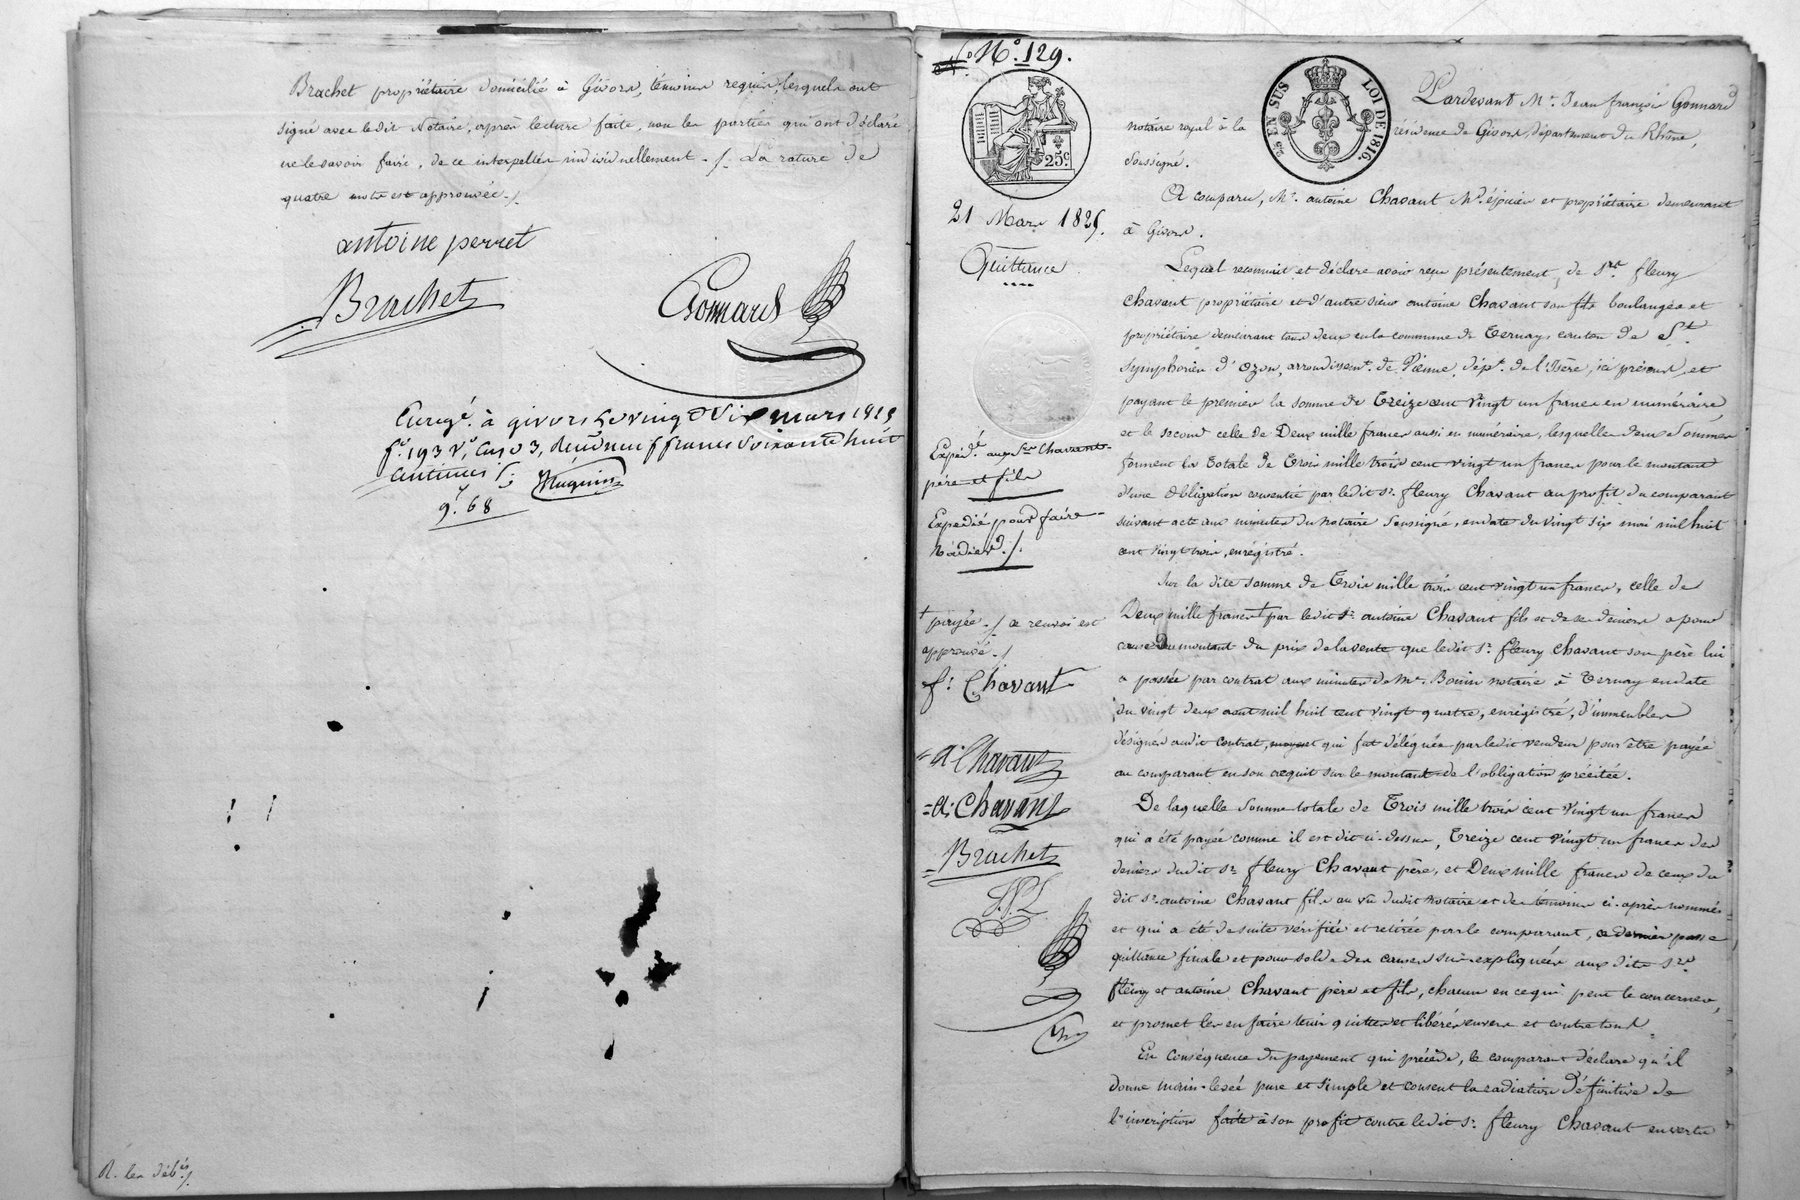 Brachet propriétaire domicilié à Givors, témoins requis, lesquels ont
signé avec ledit Notaire, après lecture faite, non les parties qui ont déclaré
ne le savoir faire, de ce interpellés individuellement ./. La rature de
quatre mots est approuvée ./.
antoine perret
Brachet
Gonnard
Enregé. à givors le vingt six mars 1825
fo. 193 vo, Cases 3, neuf francs soixante huit
centimes
9f. 68
R. les déb.és ./.
No. 129.
25c.
25c EN SUS
LOI DE 1816.
21 Mars 1825.
Quittance
Expéd.é aux Srs Chavant
père et fils
Expédié pour faire
radier ./.
+ payée ./. ce renvoi est
approuvé ./.
f: Chavant
a. Chavant
= a. Chavant
Brachet
Pardevant Me. Jean françois Gonnard
notaire royal à la résidence de Givors, département du Rhône,
Soussigné.
A comparu, Mr. antoine Chavant Md. épicier et propriétaire demeurant
à Givors.
Lequel reconnait et déclare avoir reçu présentement, de Srs. fleury
Chavant propriétaire et d'autre sieur antoine Chavant son fils boulanger et
propriétaire demeurant tous deux en la commune de Ternay, canton de St.
Symphorien d'Ozon, arrondissemt. de Vienne, dépt. de l'Isère, ici présents, et
payant le premier la somme de Treize cent vingt un francs en numéraire,
et le second celle de Deux mille francs aussi en numéraire, lesquelles deux Sommes
forment la Totale de Trois mille trois cent vingt un francs pour le montant
d'une Obligation consentie par ledit Sr. fleury Chavant au profit du comparant
suivant acte aux minutes du notaire Soussigné, en date du vingt six mai mil huit
cent vingt trois, enrégistré.
Sur la dite somme de Trois mille trois cent vingt un francs, celle de
Deux mille francs + par ledit Sr. antoine Chavant fils et de ses deniers a pour
cause Du montant du prix de la vente que ledit Sr. fleury Chavant son père lui
a passée par contrat aux minutes de Me. Bonin notaire à Ternay en date
du vingt deux aout mil huit cent vingt quatre, enrégistré, d'immeubles
désignés audit contrat, qui fut déléguée par ledit vendeur pour être payée
au comparant en son acquit sur le montant de l'obligation précitée.
De laquelle Somme totale de Trois mille trois cent vingt un francs
qui a été payée comme il est dit ci-dessus, Treize cent vingt un francs des
deniers dudit Sr. fleury Chavant père, et Deux mille francs de ceux du
dit Sr. antoine Chavant fils au vû dudit notaire et des témoins ci-après nommés
et qui a été de suite vérifiée et retirée par le comparant, ce dernier passe
quittance finale et pour solde des causes sus-expliquées aux dits Srs.
fleury et antoine Chavant père et fils, chacun en ce qui peut le concerner,
et promet les en faire tenir quittes et libérés envers et contre tous.
En conséquence du payement qui précède, le comparant déclare qu'il
donne main-levée pure et simple et consent la radiation définitive de
l'inscription faite à son profit contre ledit Sr. fleury Chavant en vertu